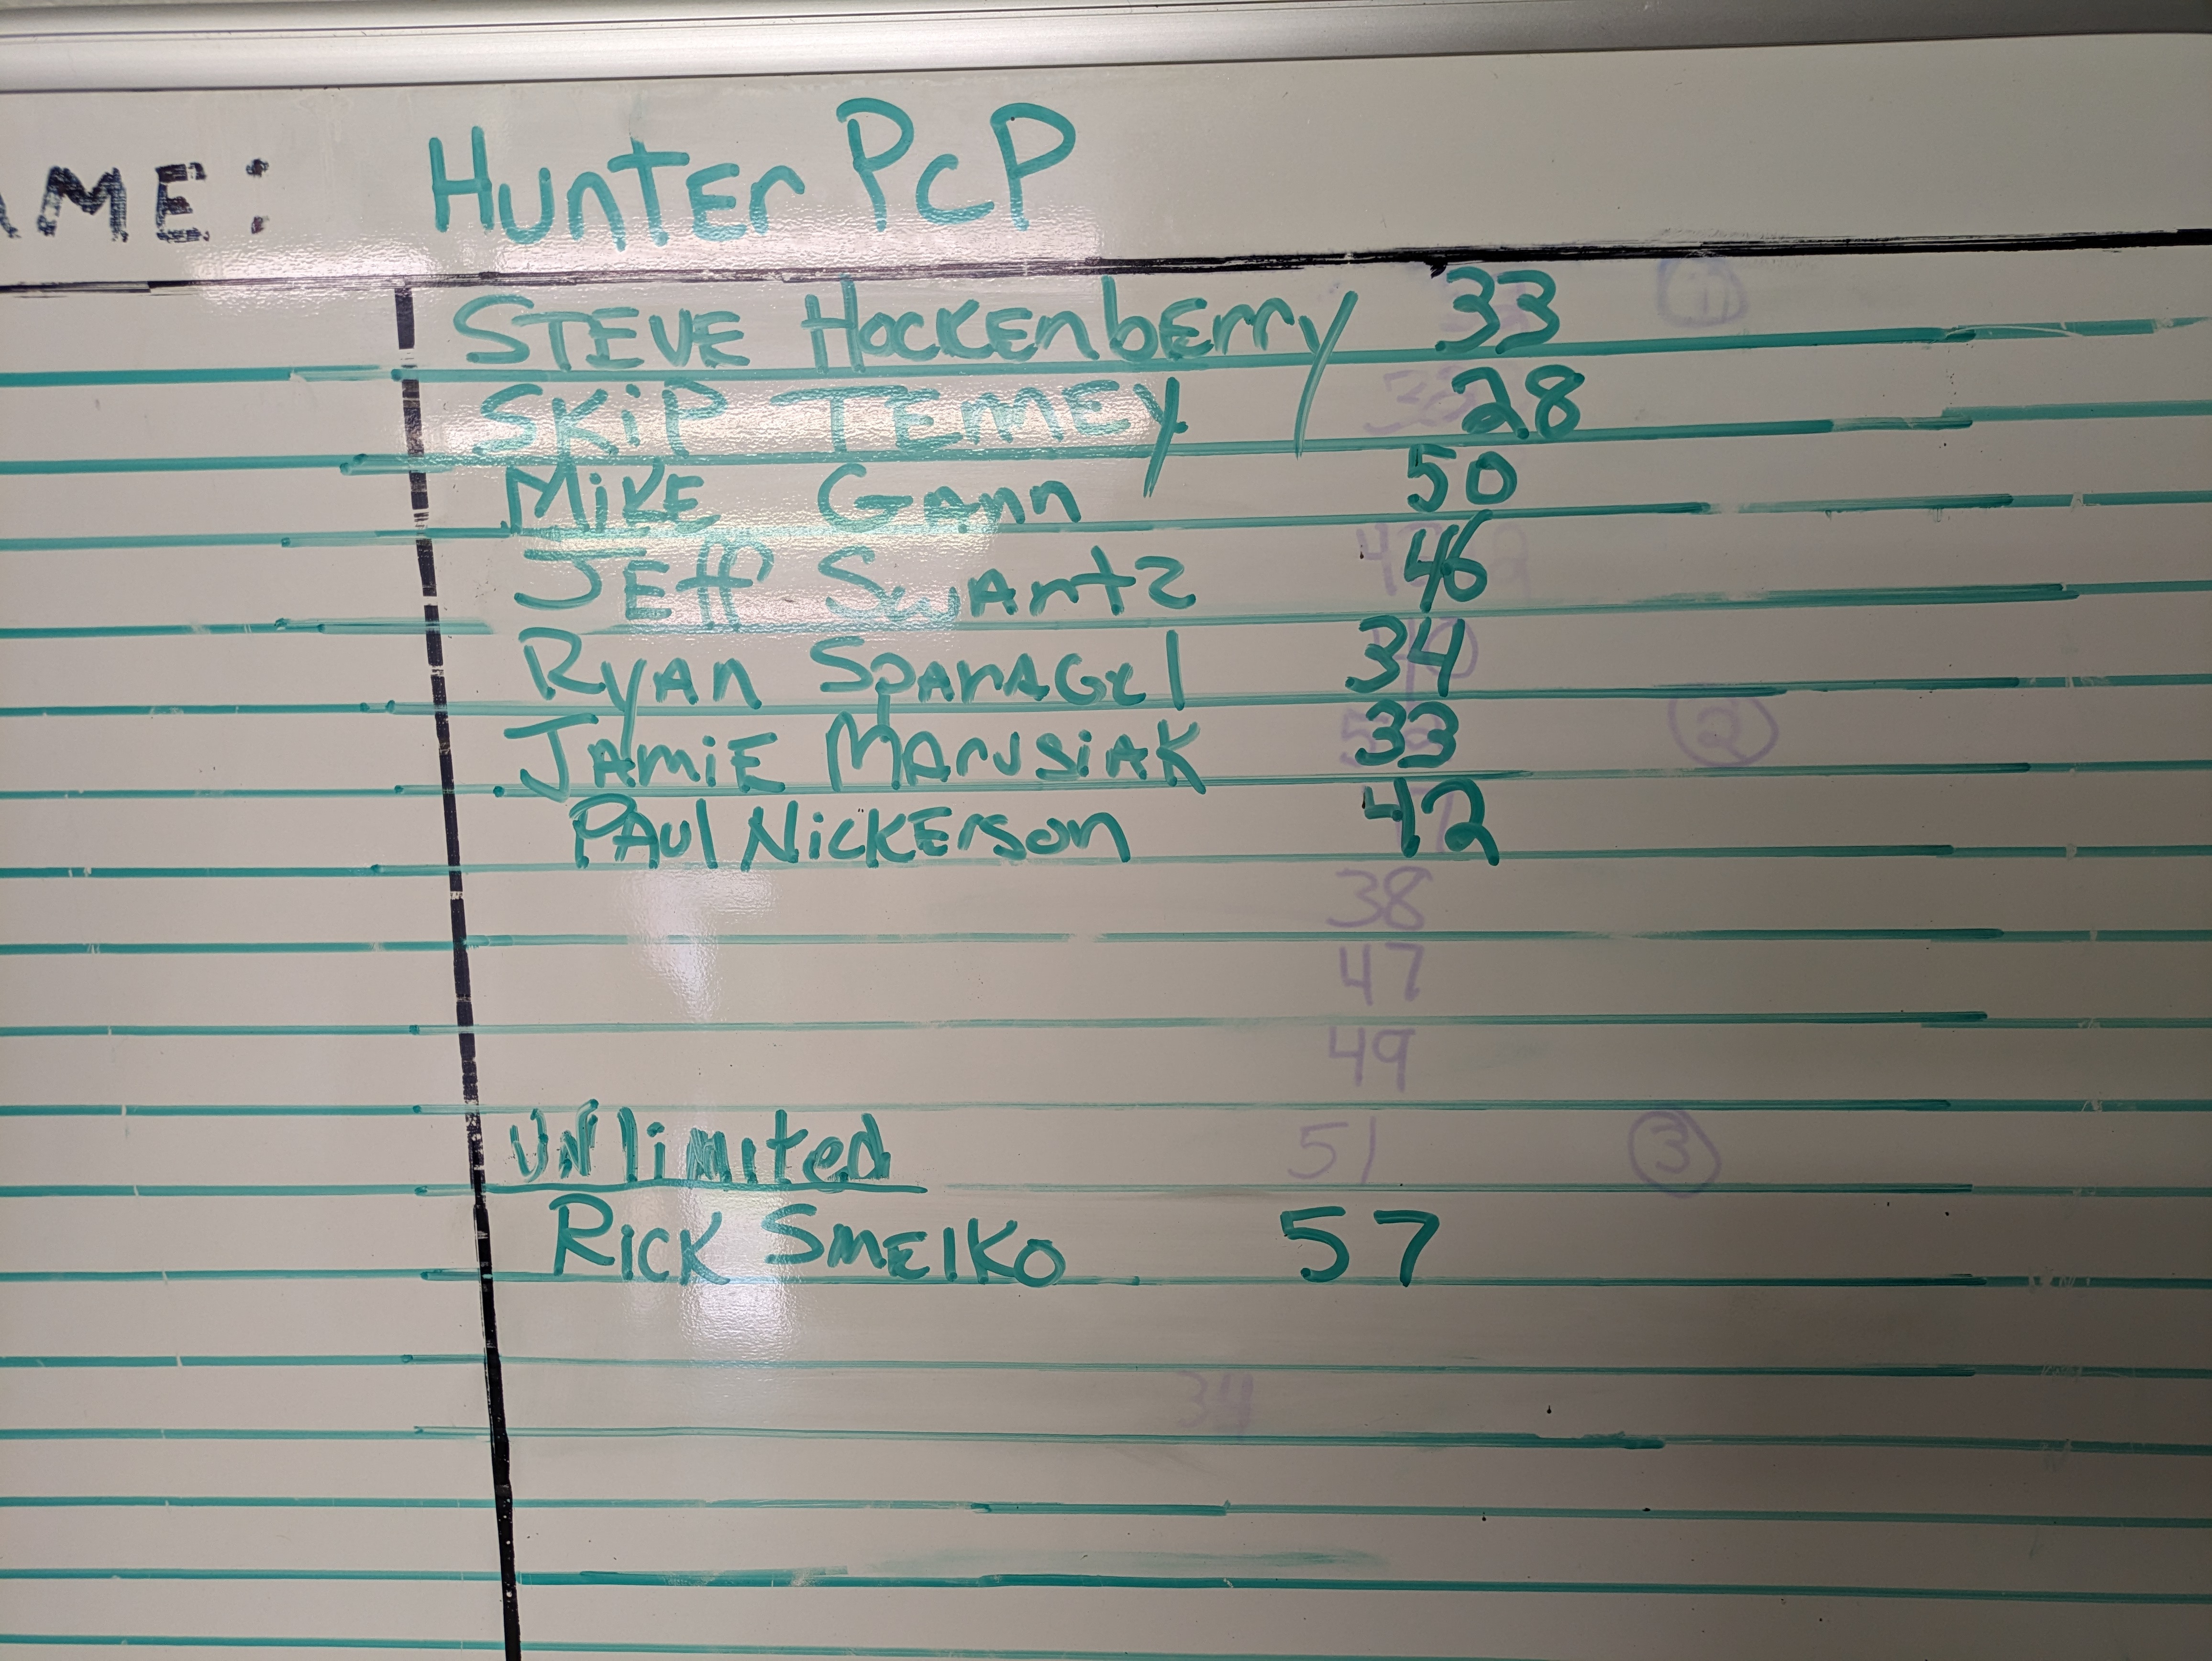 AME: Hunter PCP
Steve Hockenberry 33
Skip Temey 28
Mike Gann 50
Jeff Swartz 46
Ryan Spanagel 34
Jamie Marusiak 33
Paul Nickerson 42
38
47
49
Unlimited 51 3
Rick Smeiko 57
34